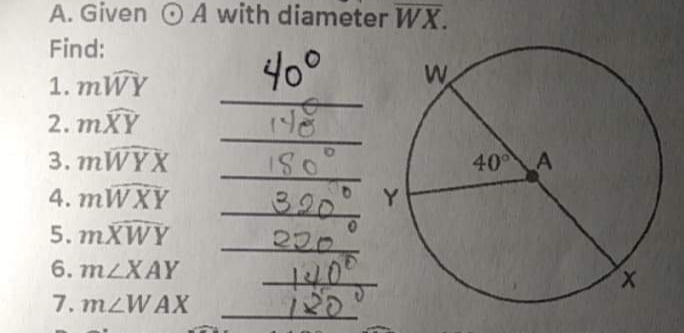 A. Given ⊙ A with diameter WX.
Find:
1. mWY 40°
2. mXY 140
3. mWYX 180°
4. mWXY 320°
5. mXWY 220°
6. m∠XAY 140°
7. m∠WAX 180°
W
40° A
Y
X